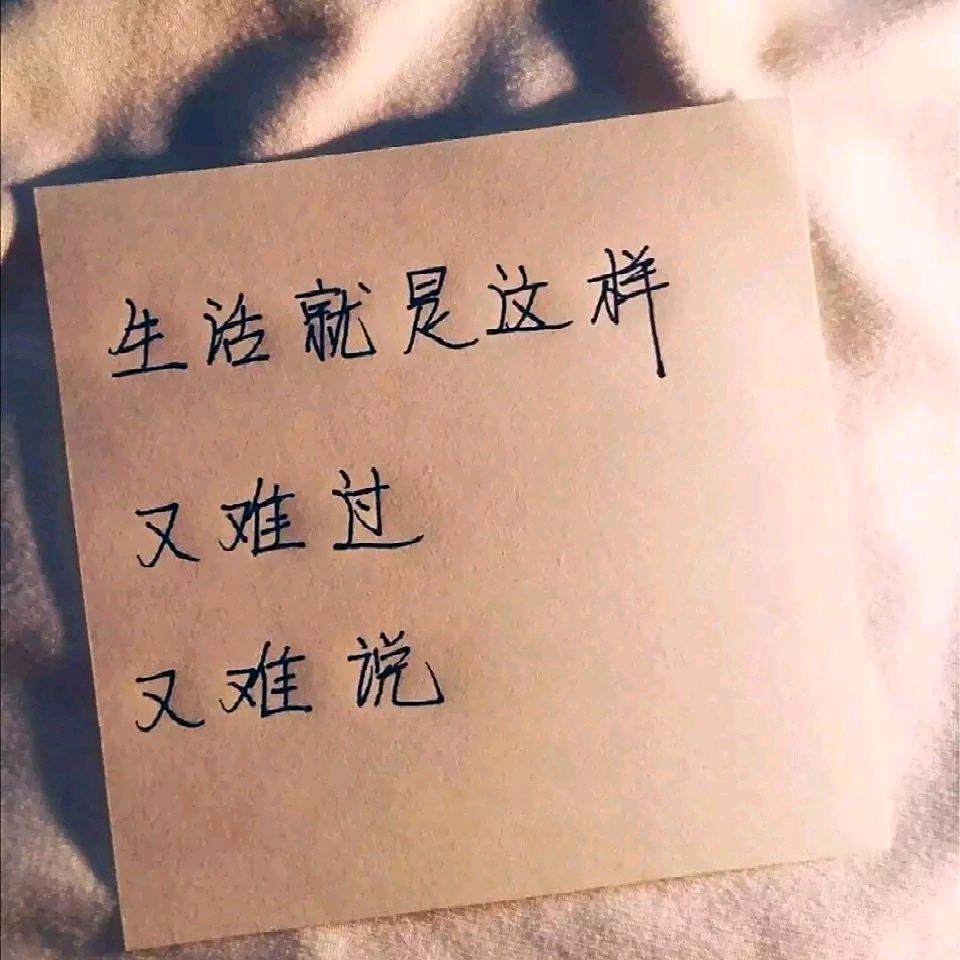 生活就是这样
又难过
又难说